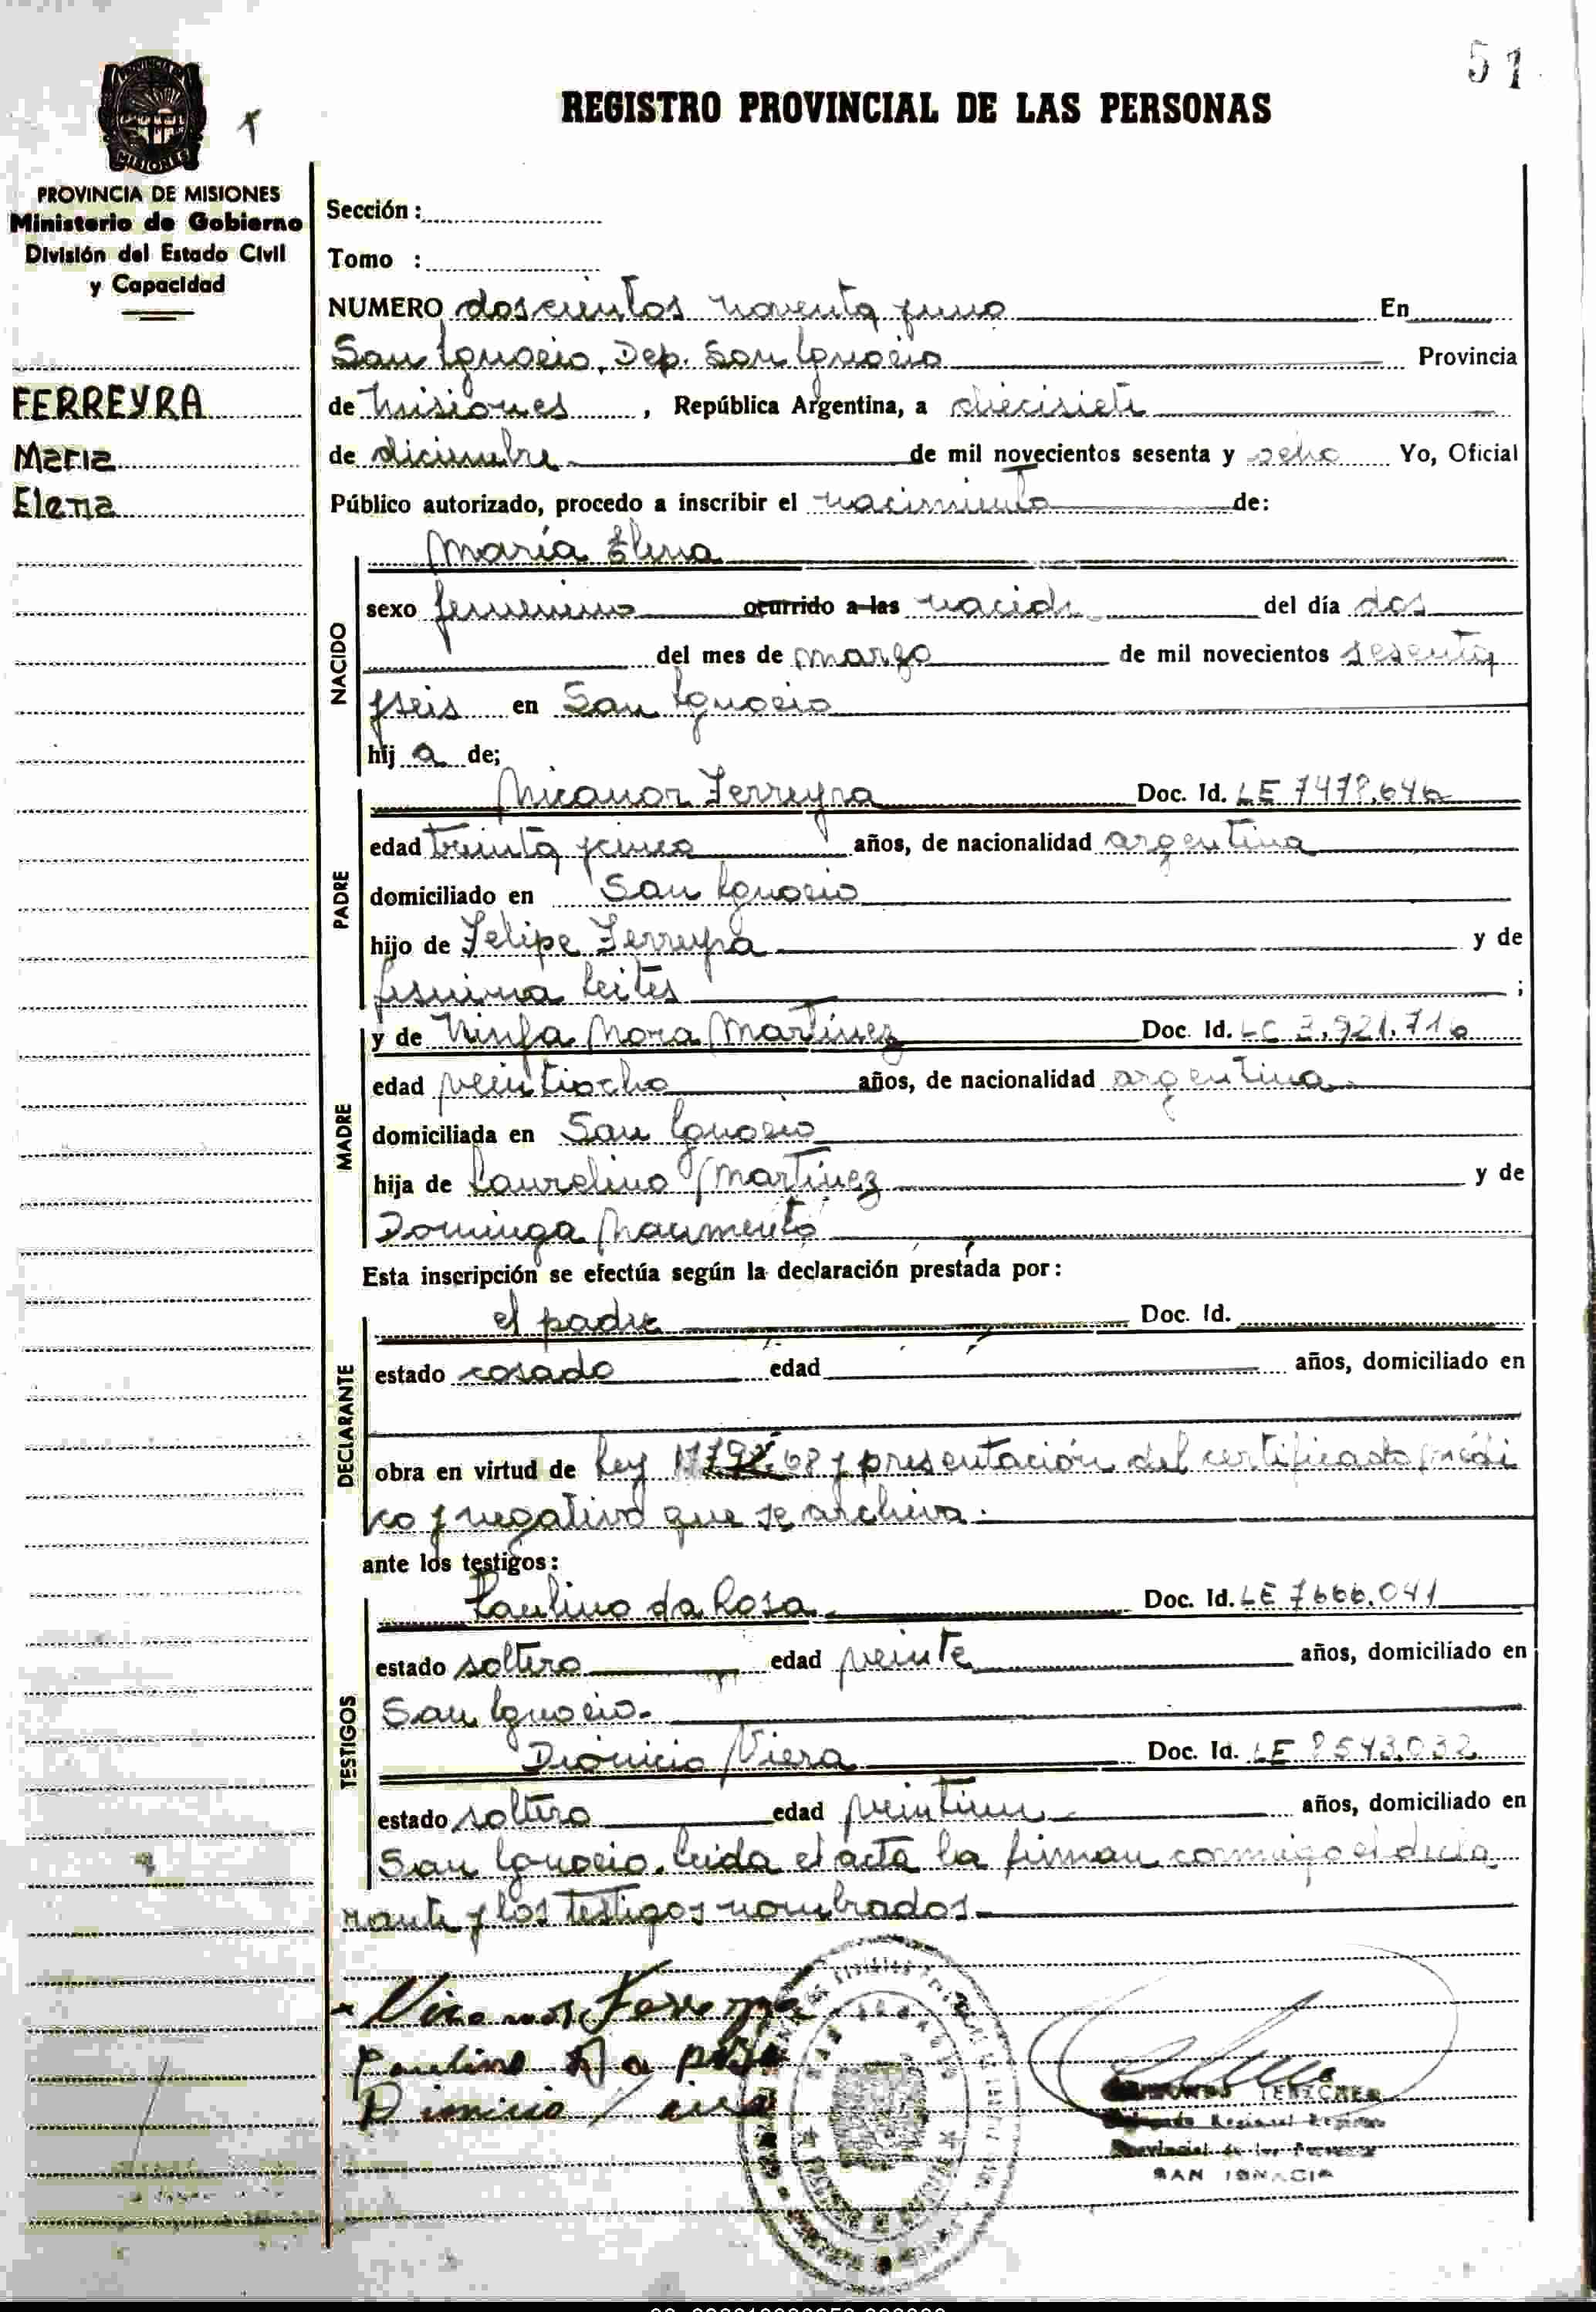 51
REGISTRO PROVINCIAL DE LAS PERSONAS
MISIONES
PROVINCIA DE MISIONES
Ministerio de Gobierno
División del Estado Civil
y Capacidad
FERREYRA
Maria
Elena
Sección :
Tomo :
NUMERO doscientos noventa y uno En
San Ignacio, Dep. San Ignacio Provincia
de Misiones , República Argentina, a diecisiete
de diciembre de mil novecientos sesenta y ocho Yo, Oficial
Público autorizado, procedo a inscribir el nacimiento de:
NACIDO
María Elena
sexo femenino ocurrido a las nacida del día dos
del mes de marzo de mil novecientos sesenta
y seis en San Ignacio
hij a de;
PADRE
Nicanor Ferreyra Doc. Id. LE 7478.646
edad treinta y cinco años, de nacionalidad argentina
domiciliado en San Ignacio
hijo de Felipe Ferreyra y de
Leites ;
MADRE
y de Ninfa Nora Martínez Doc. Id. LC 3.921.716
edad veintiocho años, de nacionalidad argentina
domiciliada en San Ignacio
hija de Laurelino Martínez y de
Dominga
Esta inscripción se efectúa según la declaración prestada por:
DECLARANTE
el padre Doc. Id.
estado casado edad años, domiciliado en
obra en virtud de ley 68 y presentación del certificado médi
co y negativo que se archiva.
ante los testigos:
TESTIGOS
Paulino da Rosa Doc. Id. LE 7666.041
estado soltero edad veinte años, domiciliado en
San Ignacio.
Dionicio Viera Doc. Id. LE 8543.032
estado soltero edad veintiun años, domiciliado en
San Ignacio. Leida el acta la firman conmigo el decla
rante y los testigos nombrados.
Nicanor Ferreyra
Paulino
Dionicio Viera
Regional
Provincial de las Personas
SAN IGNACIO